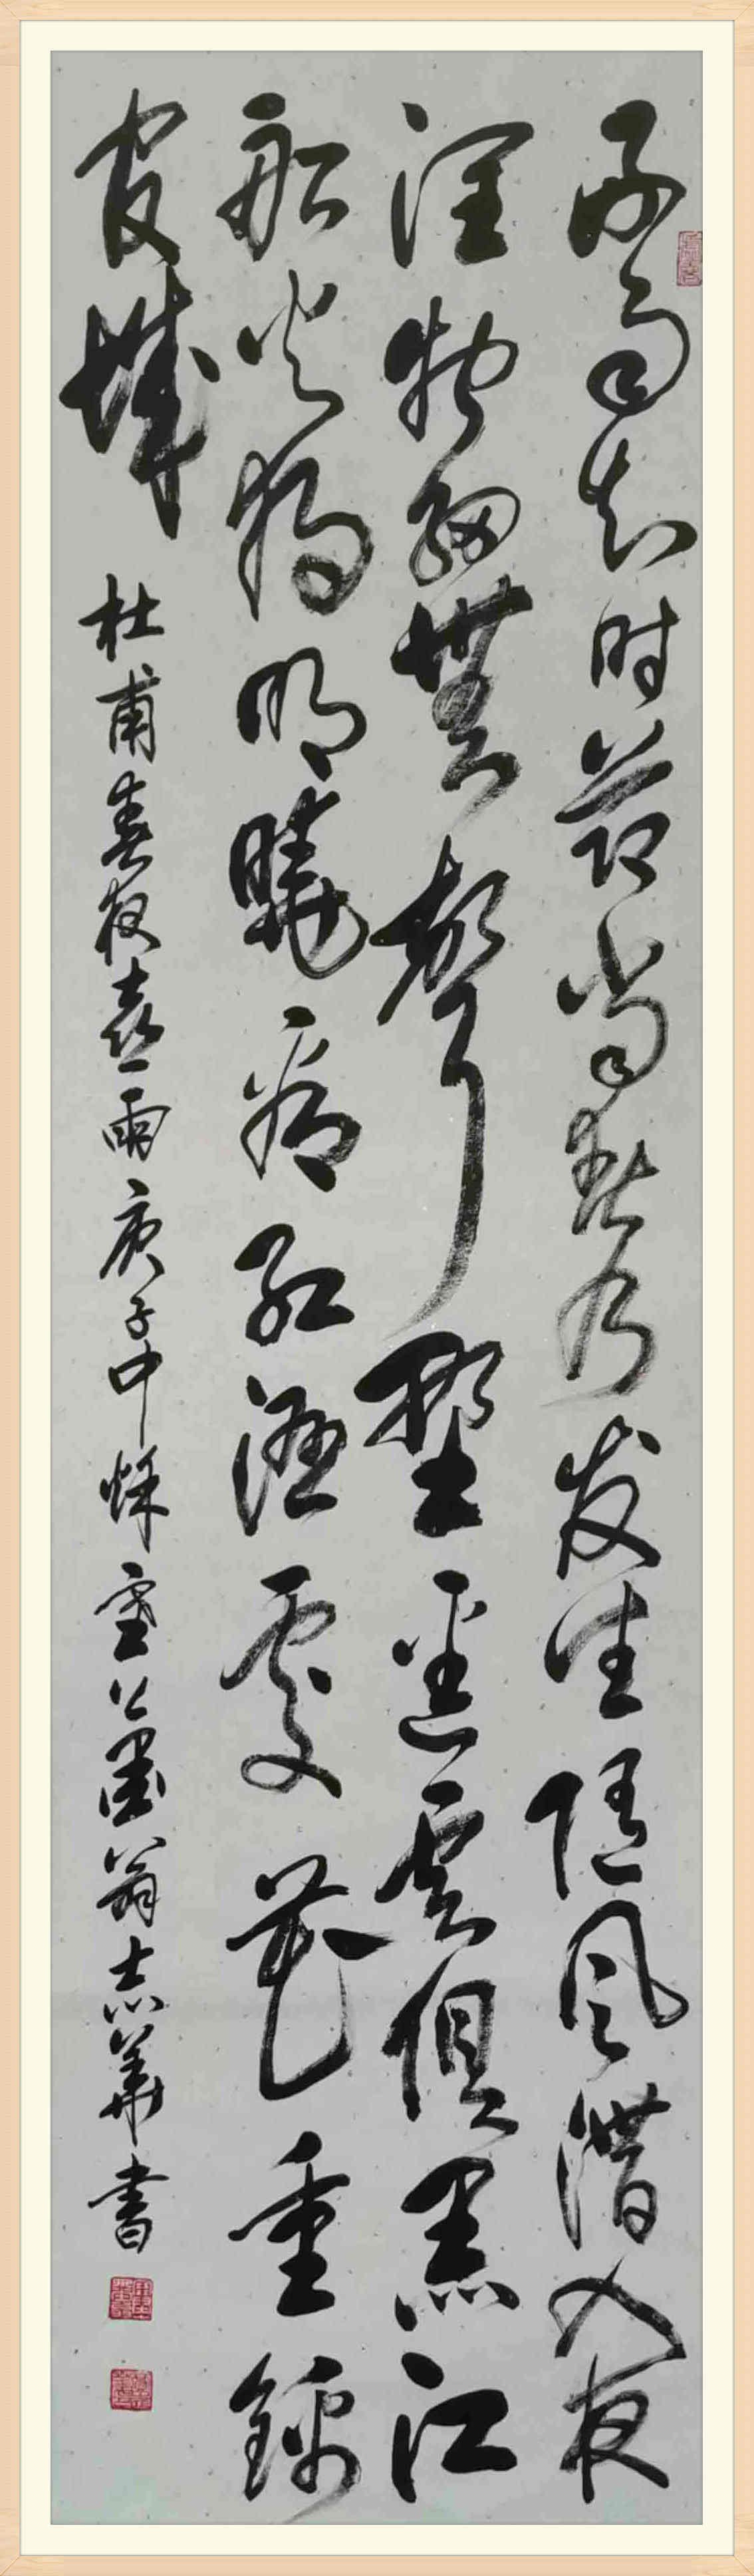 好雨知时节当春乃发生随风潜入夜
润物细無声野径雲俱黑江
船火独明曉看红湿處花重锦
官城
杜甫春夜喜雨庚子中秋翁志華书